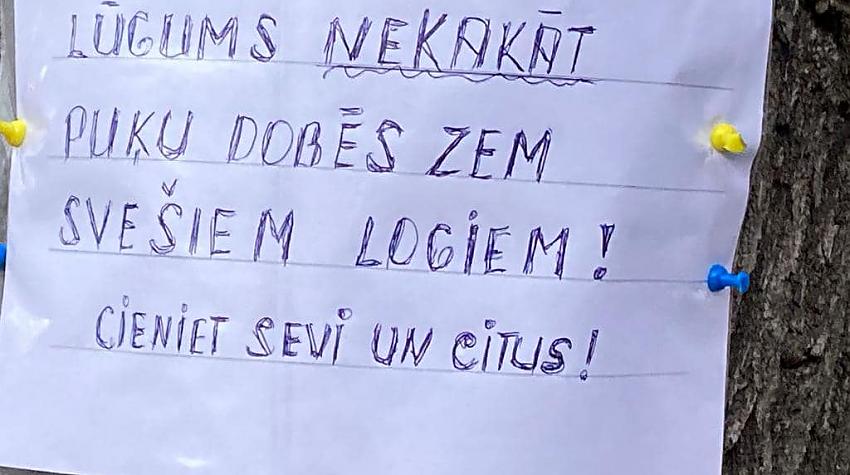 LŪGUMS NEKAKĀT
PUĶU DOBĒS ZEM
SVEŠIEM LOGIEM!
CIENIET SEVI UN CITUS!